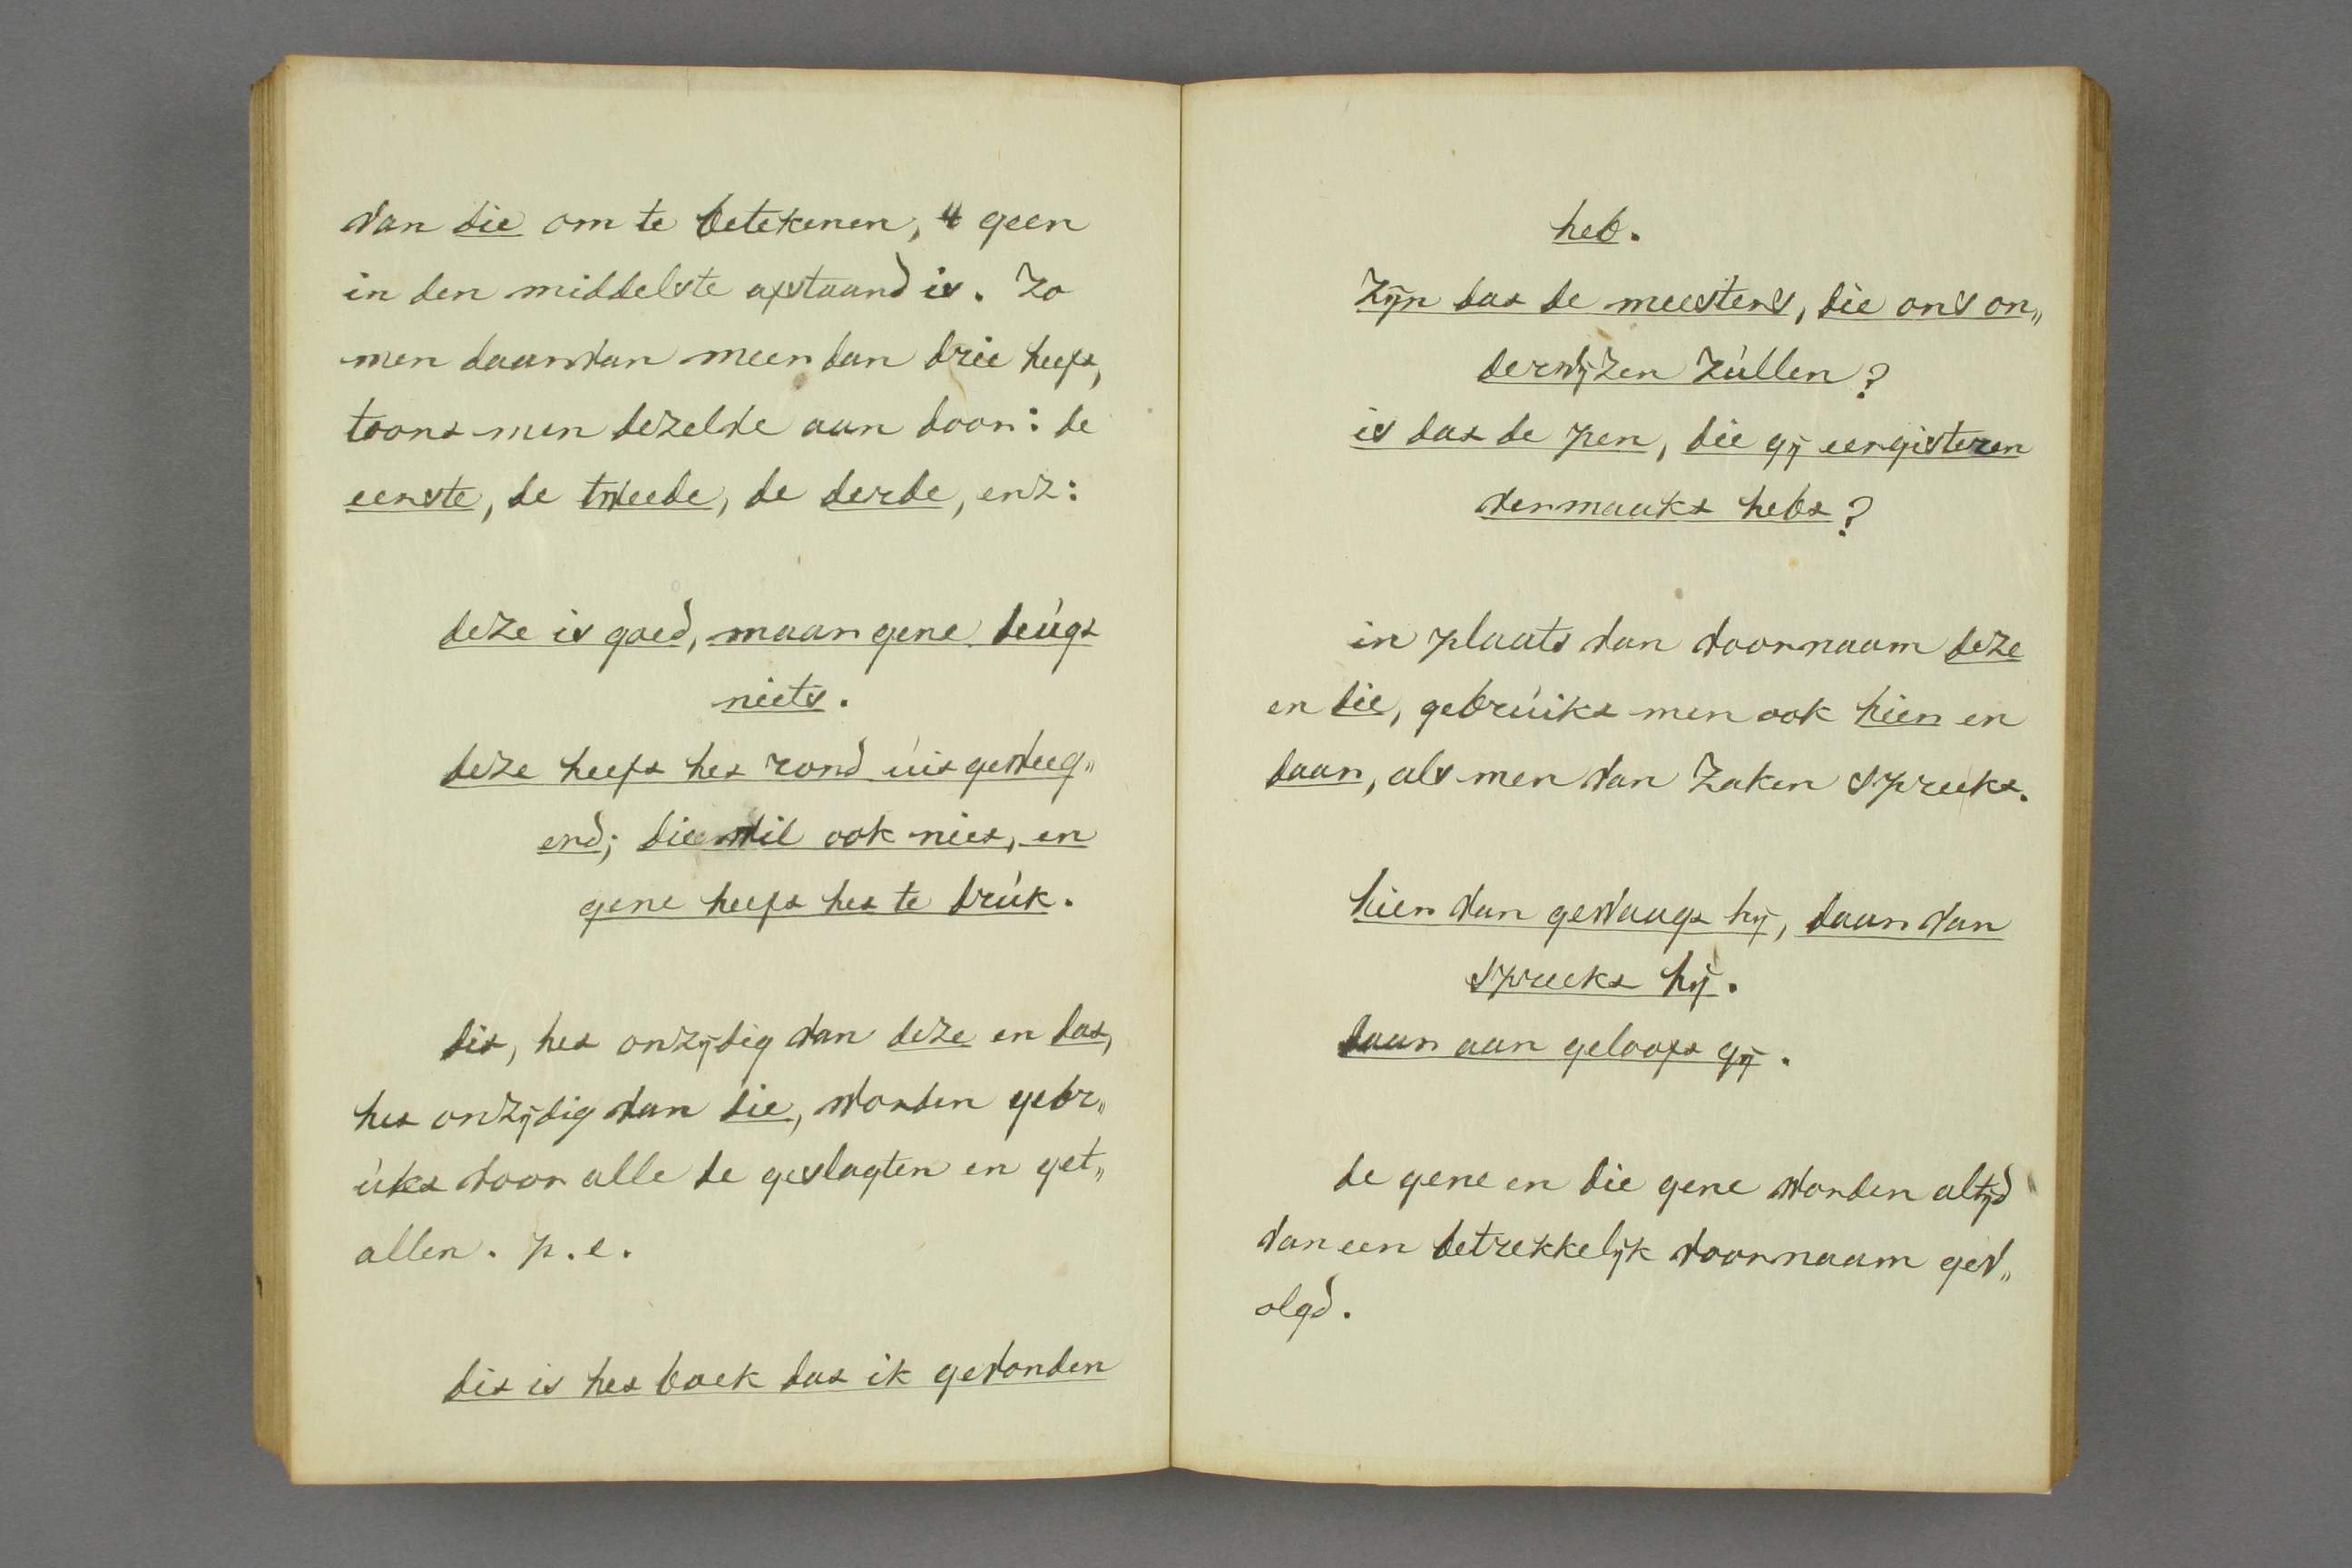 van die om te betekenen, 't geen
in den middelste afstaand is. Zo
men daarvan meer dan drie heeft,
toont men dezelve aan door: de
eerste, de tweede, de derde, enz:
deze is goed, maar gene deúgt
niets.
deze heeft het rond úit geweeg„
erd; die wil ook niet, en
gene heeft het te drúk.
dit, het onzijdig van deze en dat,
het onzijdig van die, worden gebr„
úikt voor alle de geslagten en get„
allen. p.e.
dit is het boek dat ik gevonden
heb.
Zijn dat de meesters, die ons on„
derwijzen Zúllen?
is dat de pen, die gij eergisteren
vermaakt hebt?
in plaats van voornaam deze
en die, gebrúikt men ook hier en
daar, als men van Zaken spreekt.
hier van gewaagt hij, daar van
spreekt hij.
daar aan gelooft gij.
de gene en die gene worden altijd
van een betrekkelijk voornaam gev„
olgd.